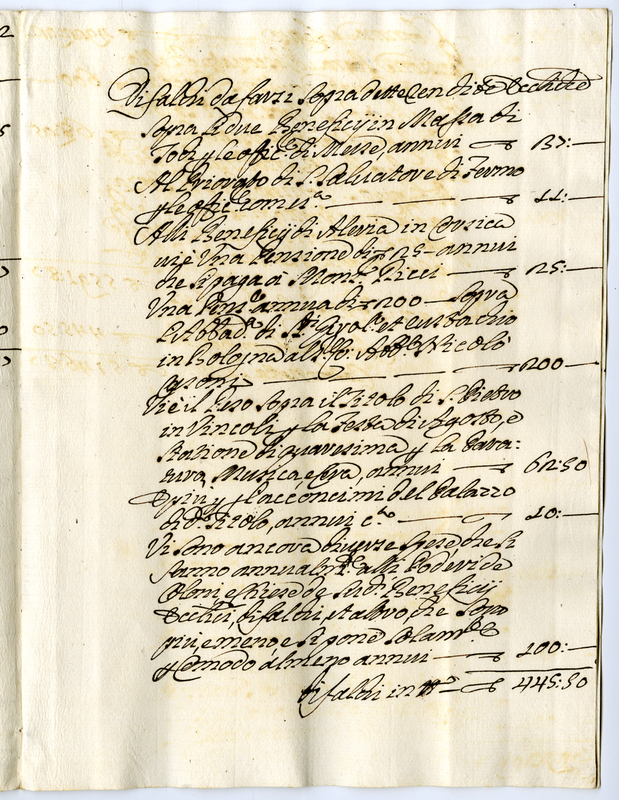 Difalchi da farsi sopra dette Rendite Ecclesiastiche
Sopra li due Beneficij in Massa di
Todi p le offic.e di Messe, annui — 37:—
Al Priorato di S. Salvatore di Fermo
p le offic.e — 11:—
Alli Beneficij di Aleria in Corsica
vi è una Pensione di 25 — annui
che si paga à Mons.r Ricci — 25:—
Una Pens.e annua di 200 — sopra
l'Abbad.a di SS. et Eustachio
in Bologna al Sig. Abb.e Nicolò
— 200 —
Vi è il Peso sopra il Titolo di S. Pietro
in Vincoli p la Festa di Agosto, e
Statione di quaresima p la Para:
tura, Musica, e Cera, annui — 62:50
E più p l'acconcimi del Palazzo
di d.o Titolo, annui c.a — 10:—
Vi sono ancora diverse spese che si
fanno annualm.te alli Poderi de
Coloni, e Chiese de sud.i Beneficij
Eccl.ci, difalchi, et altro, che sono
più, e meno, e si pone solam.te
p comodo almeno annui — 100:—
Difalchi in tt.o — 445:50